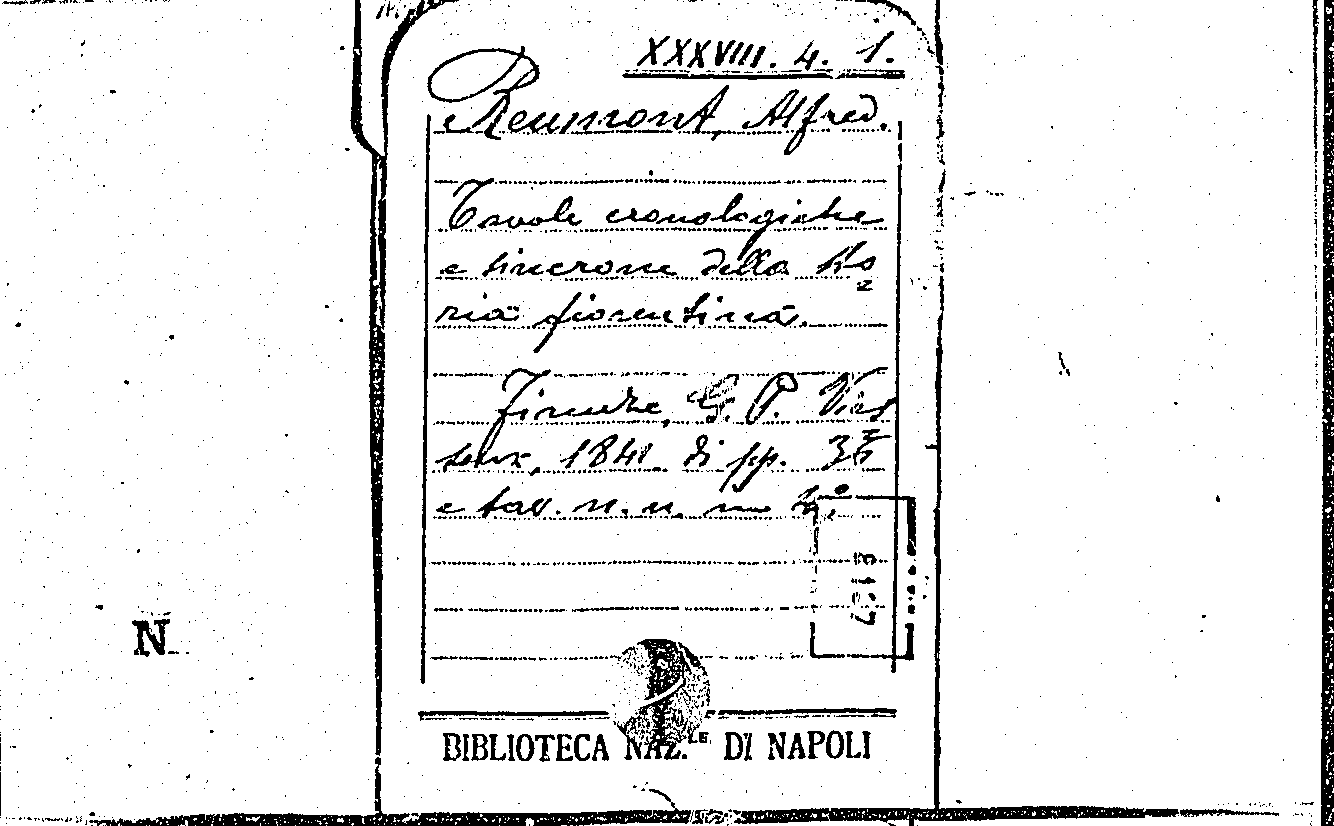 XXXVIII. 4. 1.
Reumont, Alfred.
Tavole cronologiche
e sincrone della sto
ria fiorentina.
Firenze, G. P. Vies
seux, 1841. di pp.
e tav. n. n. in
N
BIBLIOTECA NAZ.LE DI NAPOLI